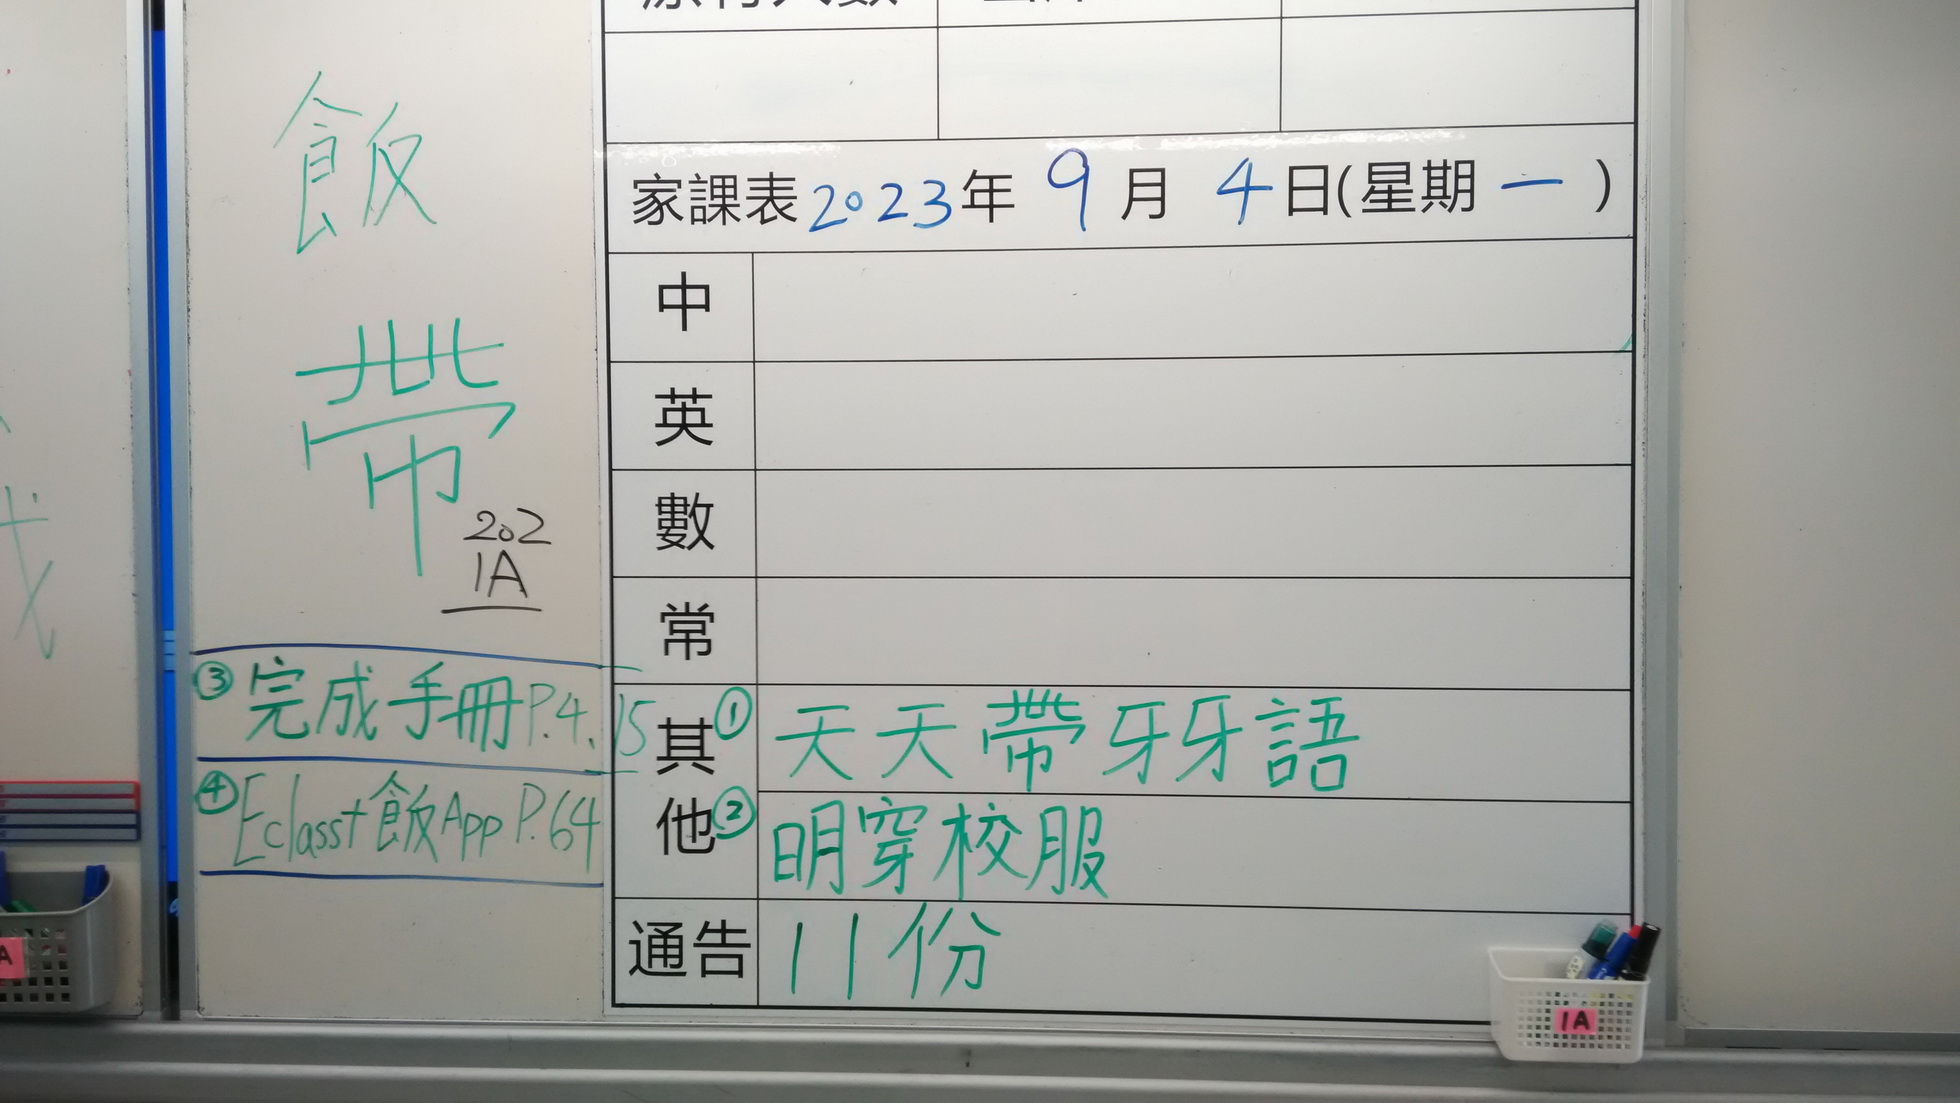 飯
帶
202
1A
家課表2023年 9月 4日(星期一)
中
英
數
常
其他
① 天天帶牙牙語
② 明穿校服
③ 完成手冊P.4、15
④ Eclass+飯App P.64
通告 11份
1A